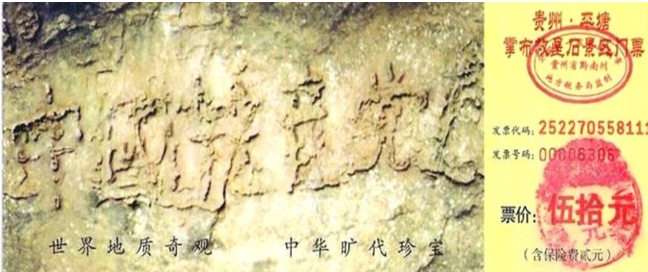 中國共产党
世界地质奇观 中华旷代珍宝
贵州·平塘
掌布救星石景区门票
贵州省黔南州
地方税务局监制
发票代码: 252270558111
发票号码: 00006306
票价: 伍拾元
(含保险费贰元)